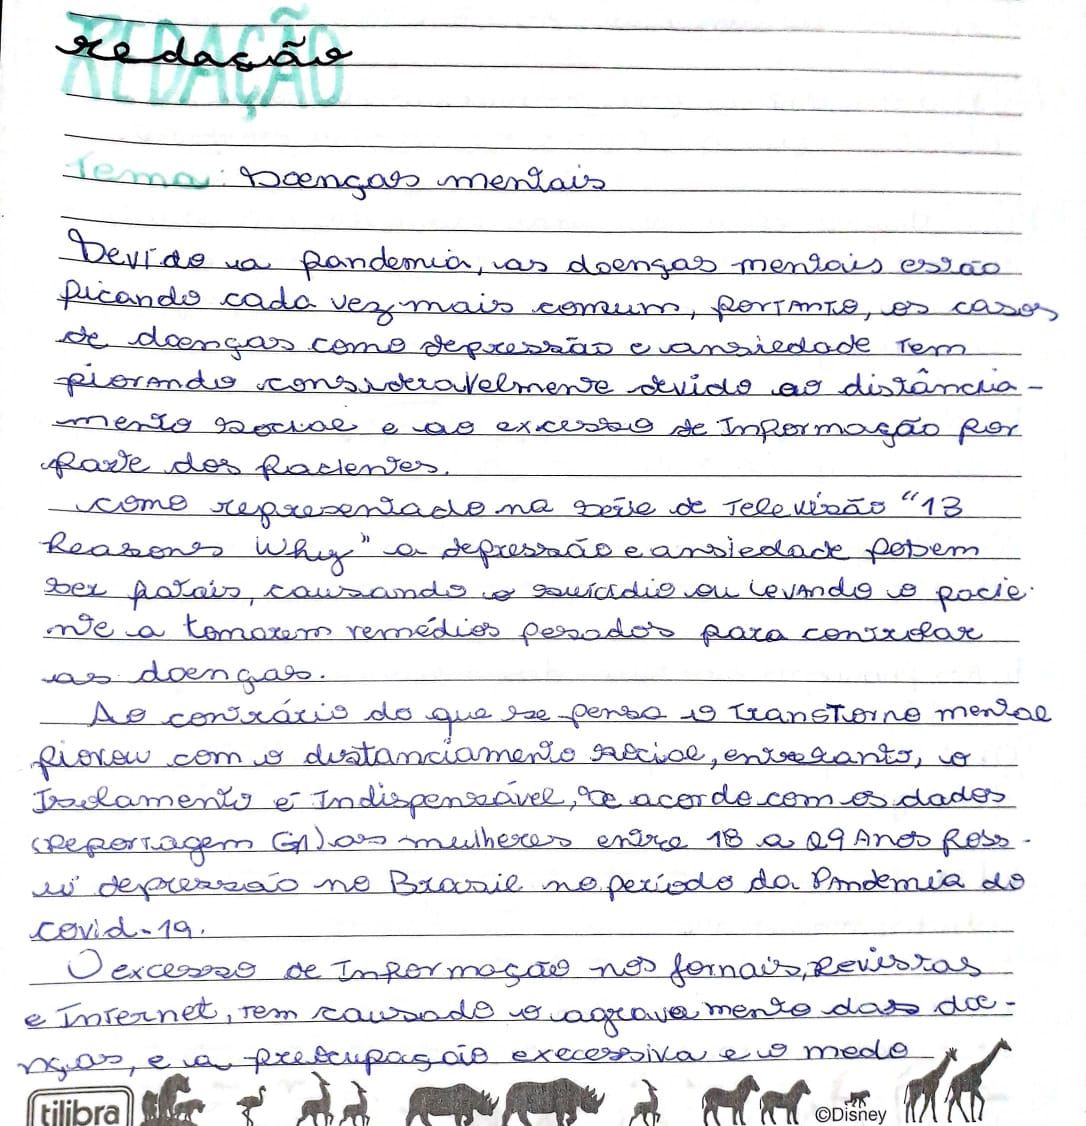 REDAÇÃO
redação
Tema: Doenças mentais
Devido a pandemia, as doenças mentais estão
ficando cada vez mais comum, portanto, os casos
de doenças como depressão e ansiedade tem
piorando consideravelmente devido ao distância-
mento social e ao excesso de Informação por
parte dos pacientes.
como representado na série de Televisão "13
Reasons Why" a depressão e ansiedade podem
ser fatais, causando o suicídio ou levando o pacie-
nte a tomarem remédios pesados para controlar
as doenças.
Ao contrário do que se pensa o Transtorno mental
piorou com o distanciamento social, entretanto, o
Isolamento é Indispensável, de acordo com os dados
(Reportagem G1) as mulheres entre 18 a 29 Anos poss-
ui depressão no Brasil no período da Pandemia do
covid-19.
O excesso de Informação nos jornais, Revistas
e Internet, tem causado o agravamento das doe-
nças, e a preocupação execessiva e o medo
tilibra
©Disney